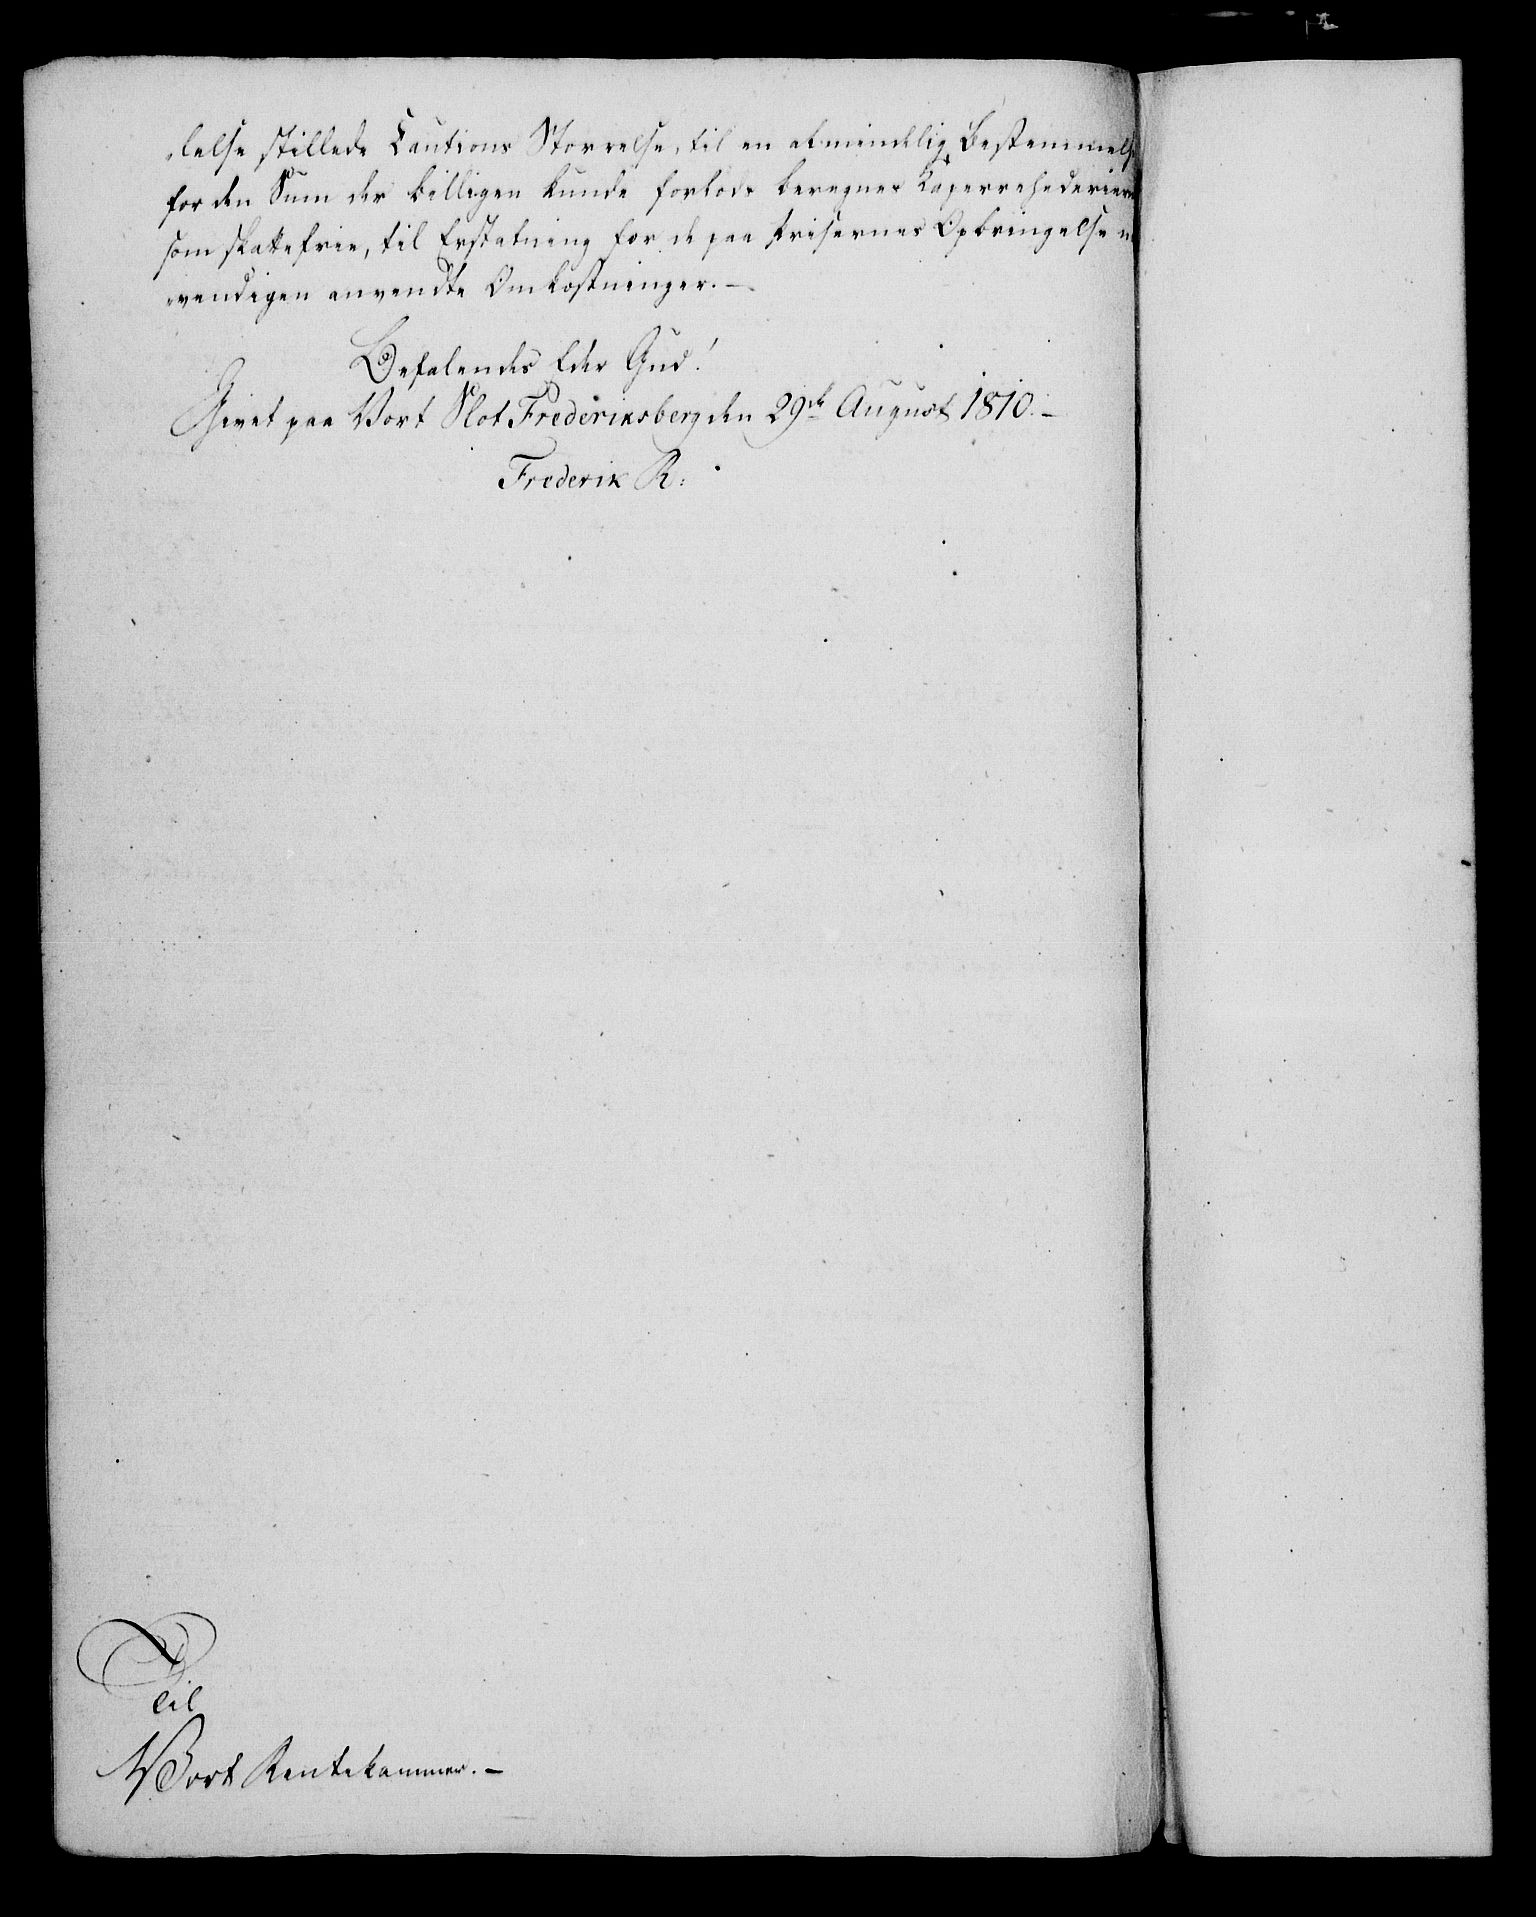 „delse stillede Cautions Størrelse, til en almindelig Bestemmelse
for den Sum der billigen kunde forlods beregnes Kaperrehederierne
som skattefrie, til Erstatning for de paa Prisernes Opbringelse
„vendigen anvendte Omkostninger. —
Befalendes Eder Gud!
Givet paa Vort Slot Frederiksberg den 29de August 1810. —
Frederik R:
Til
Vort Rentekammer. —